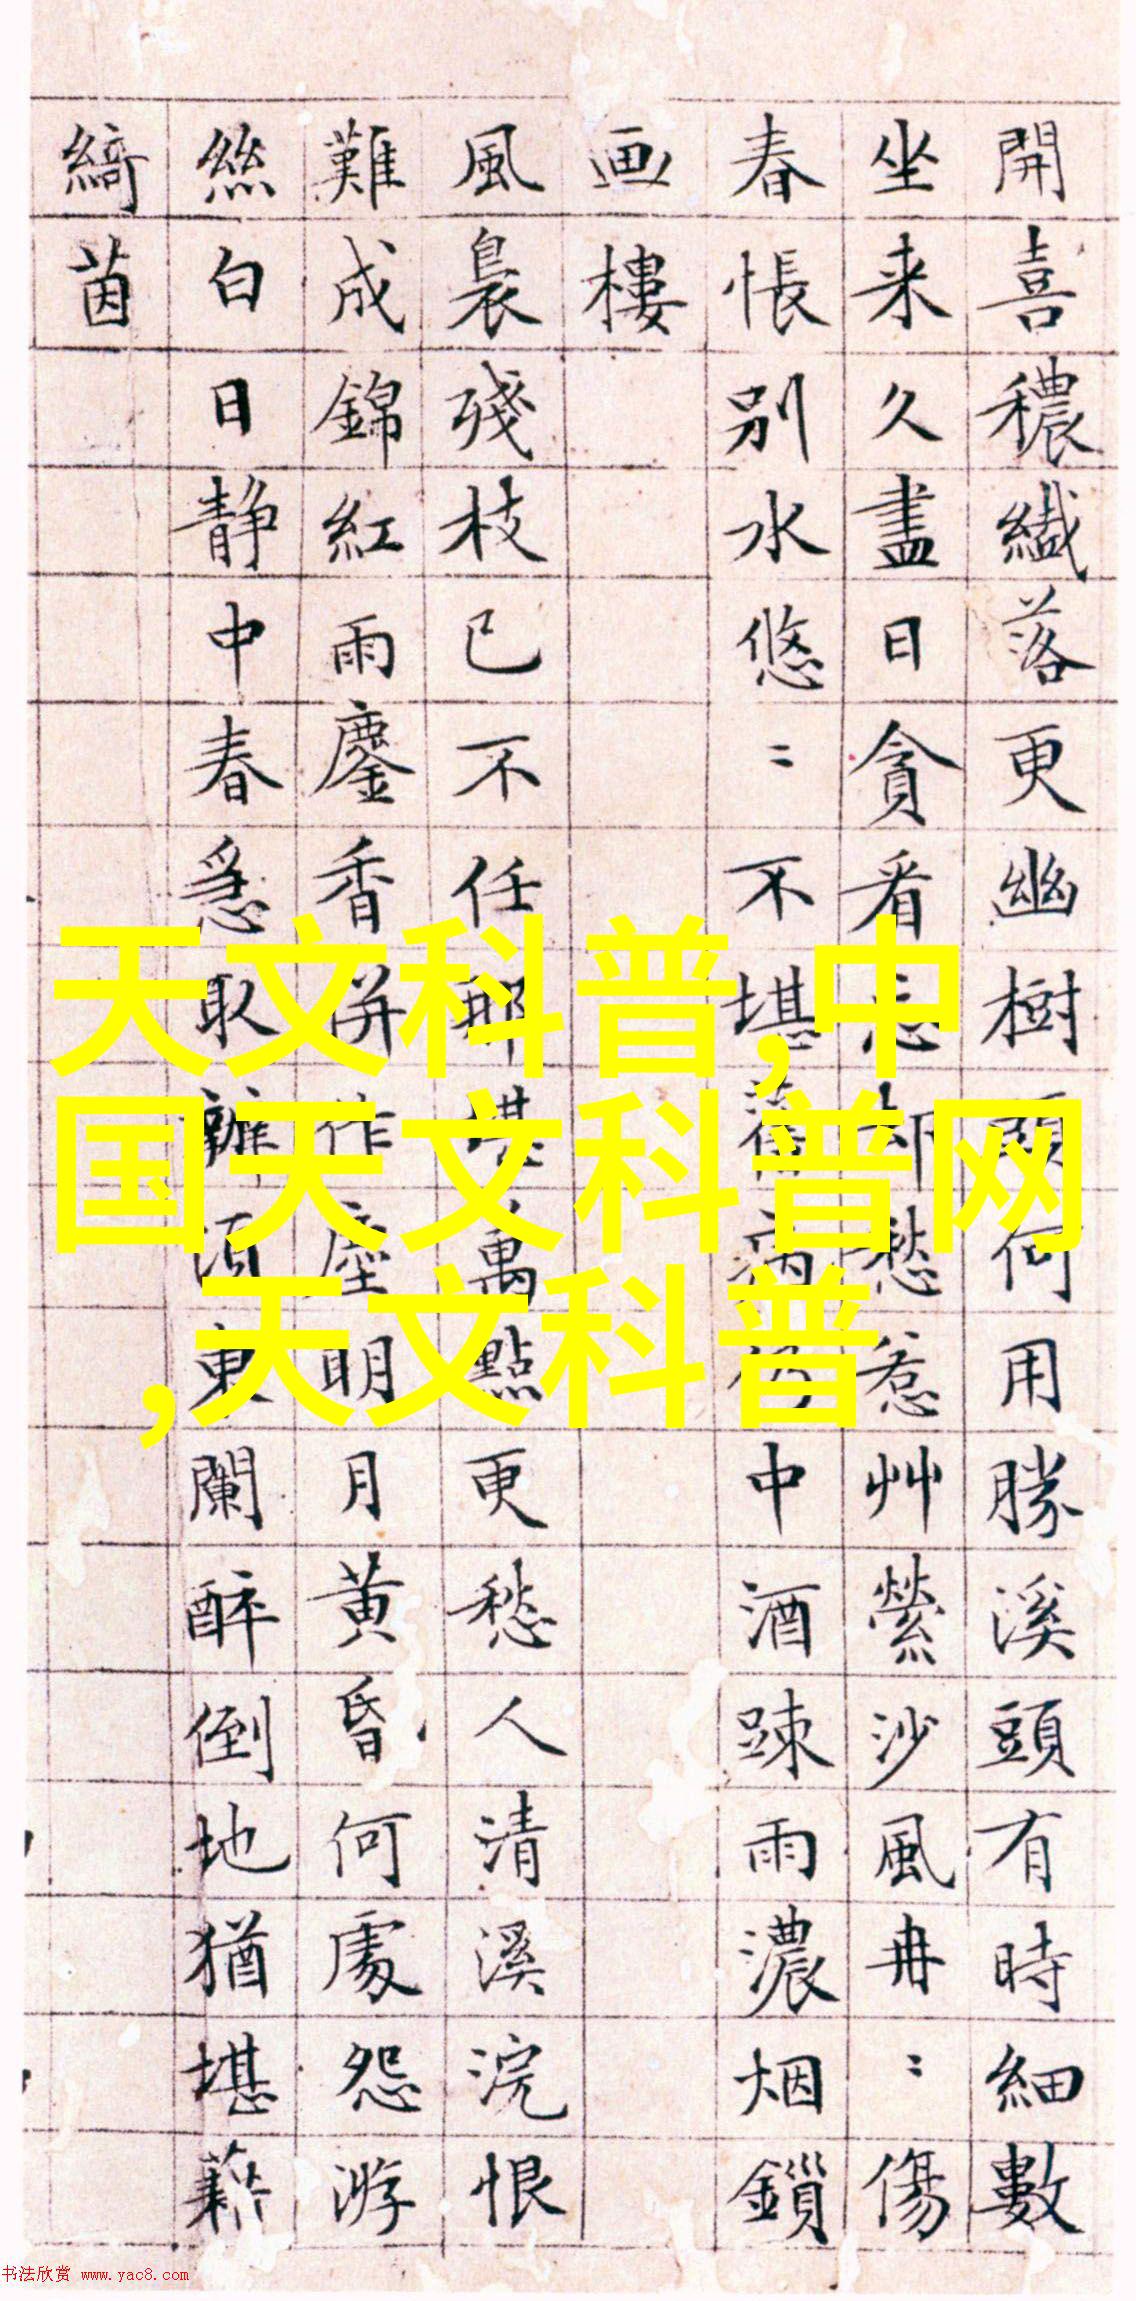 開喜穠纎落更幽樹頭何用勝溪頭有時細數
坐来久盡日貪看忘却愁惹艸縈沙風冉〻傷
春悵別水悠〻不堪舊病仍中酒踈雨濃烟鎖
画樓
風裊殘枝已不任那堪萬點更愁人清溪浣恨
難成錦紅雨鏖香併作塵明月黄昏何處怨游
絲白日静中春急取辦須東闌醉倒地猶堪藉
綺茵
天文科普,中
国天文科普网
,天文科普
书法欣赏 www.yac8.com